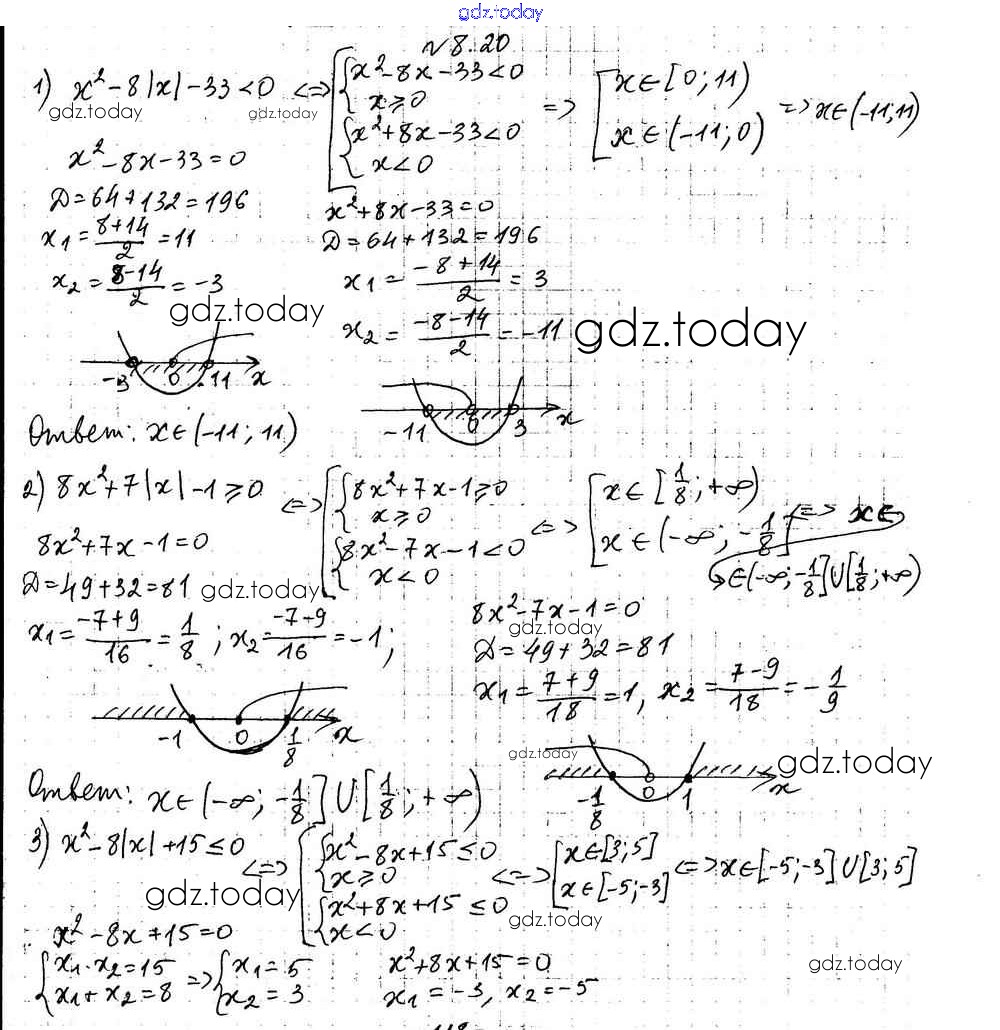 gdz.today
№8.20
1) x² - 8|x| - 33 < 0 <=> [ { x² - 8x - 33 < 0 ; x ≥ 0 ; { x² + 8x - 33 < 0 ; x < 0 => [ x ∈ [0; 11) ; x ∈ (-11; 0) => x ∈ (-11; 11)
gdz.today gdz.today
x² - 8x - 33 = 0
D = 64 + 132 = 196
x₁ = (8+14)/2 = 11
x₂ = (8-14)/2 = -3
x² + 8x - 33 = 0
D = 64 + 132 = 196
x₁ = (-8+14)/2 = 3
x₂ = (-8-14)/2 = -11
gdz.today gdz.today
-3 0 11 x
-11 0 3 x
Ответ: x ∈ (-11; 11)
2) 8x² + 7|x| - 1 ≥ 0 <=> [ { 8x² + 7x - 1 ≥ 0 ; x ≥ 0 ; { 8x² - 7x - 1 < 0 ; x < 0 <=> [ x ∈ [1/8; +∞) ; x ∈ (-∞; -1/8] <=> x ∈
∈ (-∞; -1/8] ∪ [1/8; +∞)
8x² + 7x - 1 = 0
D = 49 + 32 = 81
gdz.today
x₁ = (-7+9)/16 = 1/8 ; x₂ = (-7-9)/16 = -1;
8x² - 7x - 1 = 0
gdz.today
D = 49 + 32 = 81
x₁ = (7+9)/18 = 1, x₂ = (7-9)/18 = -1/9
-1 0 1/8 x
gdz.today gdz.today
-1/8 0 1 x
Ответ: x ∈ (-∞; -1/8] ∪ [1/8; +∞)
3) x² - 8|x| + 15 ≤ 0 <=> [ { x² - 8x + 15 ≤ 0 ; x ≥ 0 ; { x² + 8x + 15 ≤ 0 ; x < 0 <=> [ x ∈ [3; 5] ; x ∈ [-5; -3] <=> x ∈ [-5; -3] ∪ [3; 5]
gdz.today gdz.today
x² - 8x + 15 = 0
{ x₁ · x₂ = 15 ; x₁ + x₂ = 8 => { x₁ = 5 ; x₂ = 3
x² + 8x + 15 = 0
x₁ = -3, x₂ = -5
gdz.today